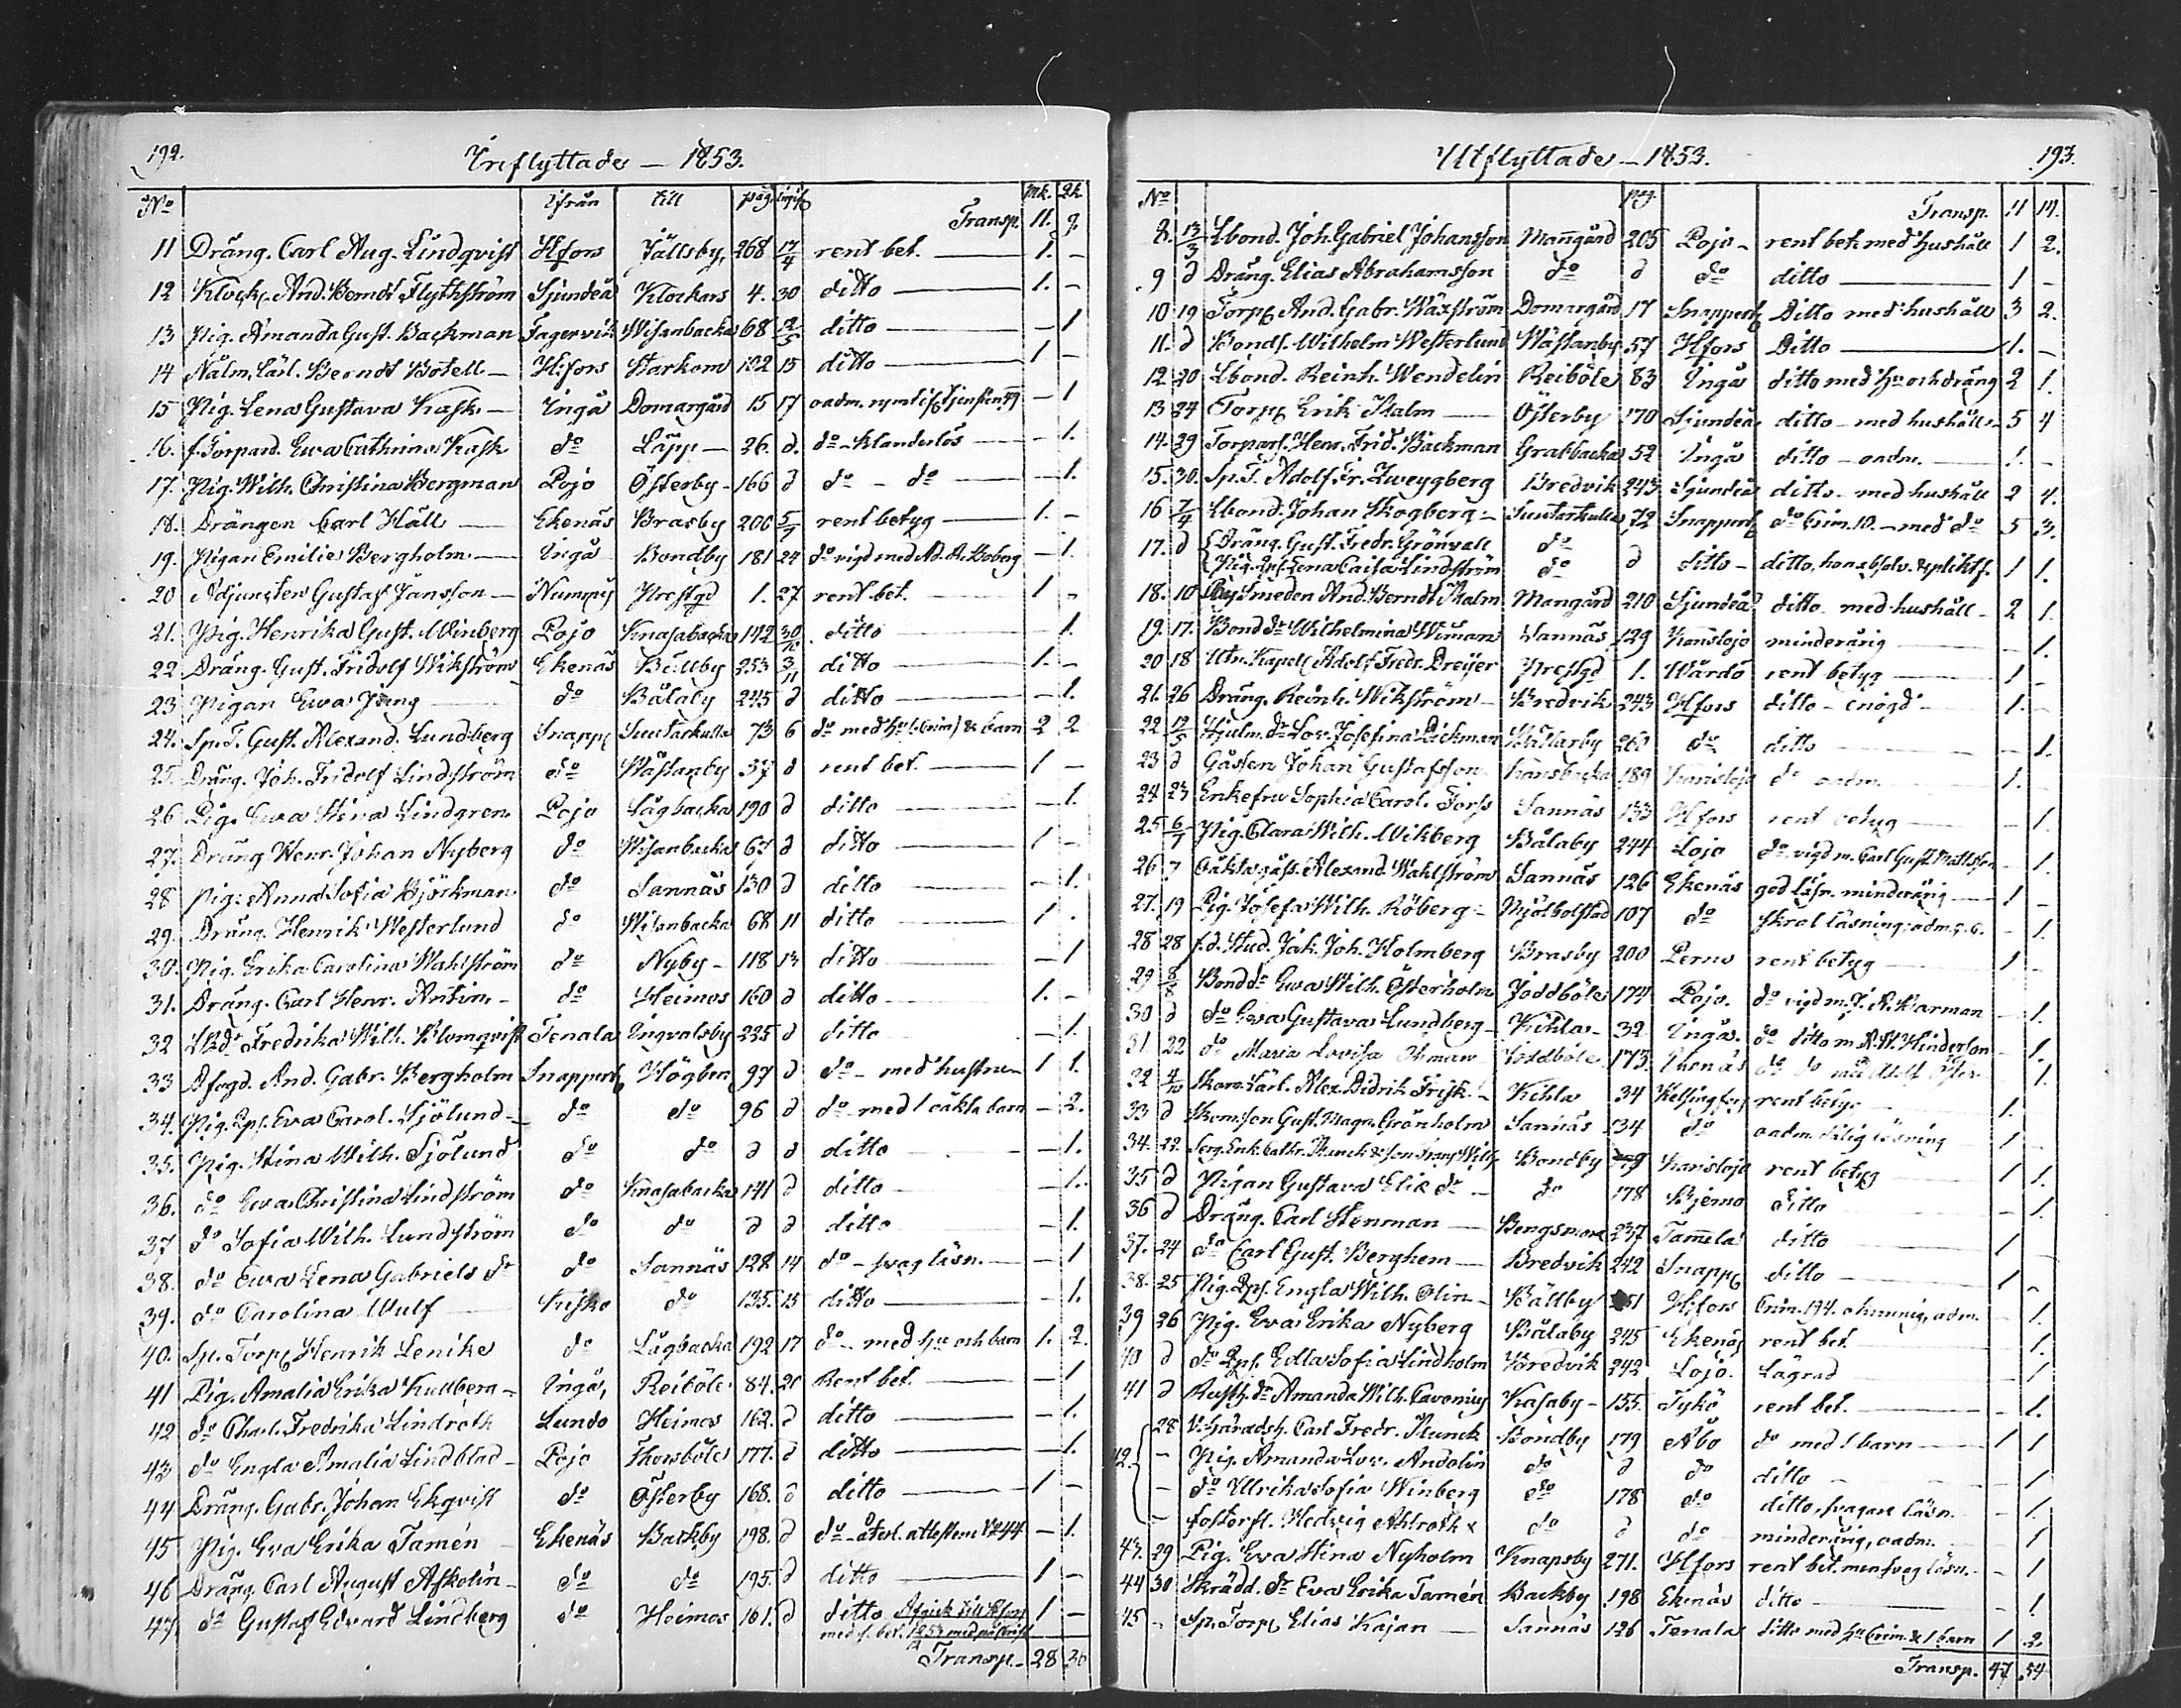 192.
Inflyttade — 1853.
No ifrån till pag. Mk. Qk.
Transp. 11. 9.
11 Dräng. Carl Aug. Lindqvist Hfors Jällsby, 268 17/4 rent bet. — 1. -
12 Klock. And. Berndt Flythström Sjundeå Klockars 4. 30 ditto — 1. -
13 Pig. Amanda Gust. Backman Fagervik Wisanbacka 68 12/5 ditto — - 1
14 Berndt Botell — Hfors Starkom 102 15 ditto — 1 -
15 Pig. Lena Gustava Kask. — Ingå Domargård 15 17 oadm. - 1
16. f. Torpard. Ewa Cathrina Kask do Läpp — 26. d. do - klanderlös — - 1.
17. Pig. Wilh. Christina Bergman Pojo Österby - 166 d do - do — 1.
18. Drängen Carl Häll — Ekenäs Brasby 200 5/7 rent betyg — 1. -
19. Pigan Emilie Bergholm. — Ingå Bondby 181 24 do vigd med Ad. R. Boberg - 1.
20 Adjuncten Gustaf Jansson — Nummis Prestgd 1. 27 rent bet. — 1 -
21. Pig. Henrika Gust. Winberg Pojo Knasabacka 142 30/10 ditto — - 1.
22 Dräng. Gust. Fridolf Wikström Ekenäs Bällby 253 3/11 ditto — 1. -
23 Pigan Ewa Jung — do Bålaby 245 d ditto — - 1.
24. Sp. T. Gust. Alexand. Lundberg Snapp. Suutarkulla 73 6 do med Hu (Crim) & barn 2 2
25. Dräng. Joh. Fridolf Lindström do Wästanby 37 d rent bet. — 1 -
26 Pig. Ewa Stina Lindgren Pojo Lågbacka 190 d ditto — - 1.
27. Dräng Henr. Johan Nyberg do Wisanbacka 67 d ditto — 1 -
28 Pig. Anna Sofia Björkman do Sannäs 130 d ditto — - 1.
29. Dräng. Henrik Westerlund do Wisanbacka 68 11 ditto — 1 .
30. Pig. Erika Carolina Wahlström do Nyby - 118 13 ditto — - 1
31. Dräng. Carl Henr. Antin - do Heimos 160 d ditto — 1. -
32 Fredrika Wilh. Blomqvist Tenala Ingvalsby 225 d ditto - 1.
33 And. Gabr. Bergholm Snappert. Högben 97 d do - med hustru - 1 1.
34. Pig. Qps. Eva Carol. Sjölund - do do 96 d do - med 1 oäkta barn - 2.
35. Pig. Stina Wilh. Sjölund do do d d ditto — - 1.
36. do Ewa Christina Lindström do Knasabacka 141 d ditto — - 1.
37 do Sofia Wilh. Lundström do do d d ditto — - 1.
38. do Ewa Lena Gabriels dr do Sannäs 128 14 do - svag läsn. — - 1
39. do Carolina Wulf — Kisko do 135. 15 ditto — - 1.
40. Sp. Torp. Henrik Lenike do Lågbacka 192 17 do - med hu och barn 1. 2.
41 Pig. Amalia Erika Kullberg - Ingå, Reiböle 84. 20 Rent bet. — - 1
42 do Charl. Fredrika Lindroth Lundo Heimos 162. d ditto — - 1.
43 do Engla Amalia Lindblad - Pojo Thorsböle 177. d ditto — - 1.
44 Dräng. Gabr. Johan Ekqvist do Österby 168. d ditto — 1 -
45 Pig. Eva Erika Tamén - Ekenäs Backby 198. d do - återl. attesten No 44 - 1.
46 Dräng. Carl August Askolin - do do 195. d ditto — 1 -
47 do Gustaf Edvard Lindberg do Heimos 161. d ditto Afgick till Hfors 1 -
Transp. - 28 30
193.
Utflyttade — 1853.
No pag.
Transp. 11 14.
8. 13/3 Lbond. Joh. Gabriel Johansson Mangård 205 Pojo - rent bet. med hushåll 1 2.
9 d Dräng. Elias Abrahamsson do d do ditto — 1 -
10 19 Torp. And. Gabr. Wäxström Domargård 17 Snappert. Ditto med hushåll 3 2.
11. d Bonds. Wilhelm Westerlund Wästanby 37 Hfors Ditto — 1. -
12 20 Lbond. Reinh. Wendelin Reiböle 83 Ingå ditto med Hu och dräng 2 1.
13 24 Torp. Erik Malm — Österby 170 Sjundeå ditto - med hushåll - 5 4
14. 29 Torpars. Henr. Frid. Backman Grabbacka 52 Ingå ditto - oadm. — 1. -
15. 30. Sp. T. Adolf Fr. Zweygberg Bredvik 243 Sjundeå ditto - med hushåll 2 4.
16 7/4 Lbond. Johan Skogberg - Suutarkulla 72 Snappert. do Crim. 10. - med do 5 3.
17. d Dräng. Gust. Fredr. Grönvall do
Pig. Qps. Lena Caisa Lindström do d ditto - ditto, hon absolv. & pliktf. 1 1.
18. 10 Smeden And. Berndt Malm Mangård 210 Sjundeå ditto med hushåll - 2 1.
19. 17. Bonddr Wilhelmina Wiman Sannäs 129 Karislojo minderårig — - 1.
20 18 Adolf Fredr. Dreijer Prestgd 1. Wårdö rent betyg — 1 -
21. 26 Dräng. Reinh. Wikström - Bredvik 243 Hfors ditto - enögd - 1. -
22 12/5 Hjulm. dr Lov. Josefina Bäckman Källarby 260 do ditto — 1.
23 d Gåssen Johan Gustafsson Kansbacka 189 Karislojo do oadm. — 1. -
24 23 Enkefru Sophia Carol. Forss Sannäs 133 Hfors rent betyg — - 1.
25 6/7 Pig. Clara Wilh. Wikberg Bålaby 244 Lojo do vigd m. Carl Gust. Mattsson - 1.
26 7 Oäkta gåss. Alexand. Wahlström Sannäs 126 Ekenäs god läsn. minderårig — 1 -
27. 19 Pig. Josefa Wilh. Röberg - Mjölbolstad 107 do skral läsning, adm. - 1.
28 28 f. d. Stud. Jak. Joh. Holmberg Brasby 200 Perno rent betyg — 1 -
29 8/8 Bonddr Ewa Wilh. Österholm Joddböle 174 Pojo. do vigd m. - 1.
30 d do Eva Gustava Lundberg - Kihla - 32 Ingå. do ditto m. - 1.
31 22 do Maria Lovisa Öhman Joddböle 173. Ekenäs do do med Adolf Öster. - 1.
32 4/10 Skom. Lärl. Alex. Didrik Frisk. - Kihla 34 Helsingfors rent betyg 1.
33 d Skom. son Gust. Magn. Grönholm Sannäs 134 do oadm. dålig läsning 1 -
34. 22. Serg. Enk. Cathr. Munck & son Frans Wilh. Bondby Karislojo rent betyg — 1 1.
35 d Pigan Gustava Elis dr - do 178 Bjerno ditto — - 1.
36 d Dräng. Carl Stenman — Bengsmora 237 Tammela ditto — 1 -
37. 24 do Carl Gust. Berghem — Bredvik 242 Snapp. ditto — 1 -
38. 25 Pig. Qps. Engla Wilh. Olin - Bällby 251 Hfors Crim. 194. okunnig, adm. - 1.
39 26 Pig. Eva Erika Nyberg Bålaby 245 Ekenäs rent bet. — - 1.
40 d do Qps. Edla Sofia Lindholm Bredvik 242 Lojo. Lagrad — - 1
41 d Rusth. dr Amanda Wilh. Cavonius Kasaby - 155. Tykö rent bet. — - 1.
42. 28 V. Häradsh. Carl Fredr. Munck Bondby 179 Åbo do med 1 barn — 1 1
- Pig. Amanda Lov. Andolin do d do ditto - - 1
- do Ullrika Sofia Winberg do 178 do ditto, svagare läsn. - 1.
- fosterfl. Hedvig Ahlroth do d do minderårig, oadm. 1
43. 29 Pig. Eva Stina Nyholm Knapsby 271. Hfors rent bet. men svag läsn. - 1
44 30 Skrädd. dr Eva Erika Tamén Backby 198 Ekenäs ditto — - 1.
45 - Sp. Torp. Elias Kajan — Sannäs 126 Tenala ditto med hu Crim. & 1 barn 1 2.
Transp. 47 54